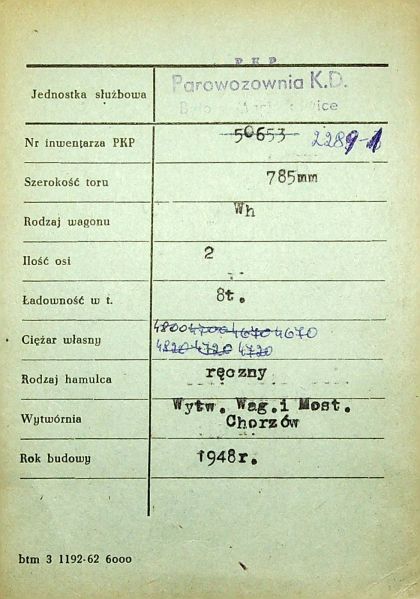 PKP
Jednostka służbowa Parowozownia K.D.
Nr inwentarza PKP 50653 2289-1
Szerokość toru 785mm
Rodzaj wagonu Wh
Ilość osi 2
Ładowność w t. 8t.
Ciężar własny 4800 4700 4670 4670
4820 4720 4720
Rodzaj hamulca ręczny
Wytwórnia Wytw. Wag. i Most.
Chorzów
Rok budowy 1948r.
btm 3 1192-62 6000